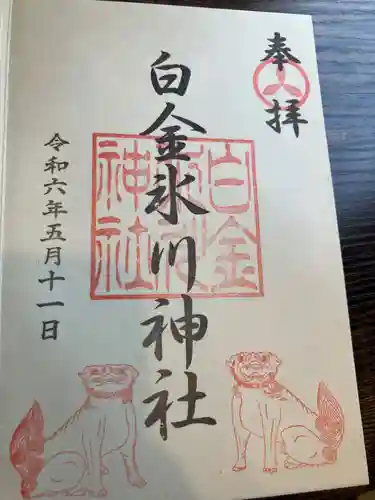 奉拝
白金氷川神社
白金氷川神社
令和六年五月十一日